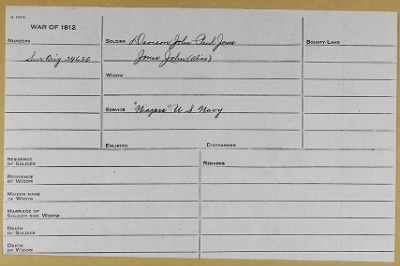 WAR OF 1812
NUMBERS
Sur Orig 24620
SOLDIER Davison John Paul Jones
Jones John (Alias)
WIDOW
SERVICE "Niagara" U S Navy
ENLISTED DISCHARGED
BOUNTY-LAND
RESIDENCE
OF SOLDIER
RESIDENCE
OF WIDOW
MAIDEN NAME
OF WIDOW
MARRIAGE OF
SOLDIER AND WIDOW
DEATH
OF SOLDIER
DEATH
OF WIDOW
REMARKS